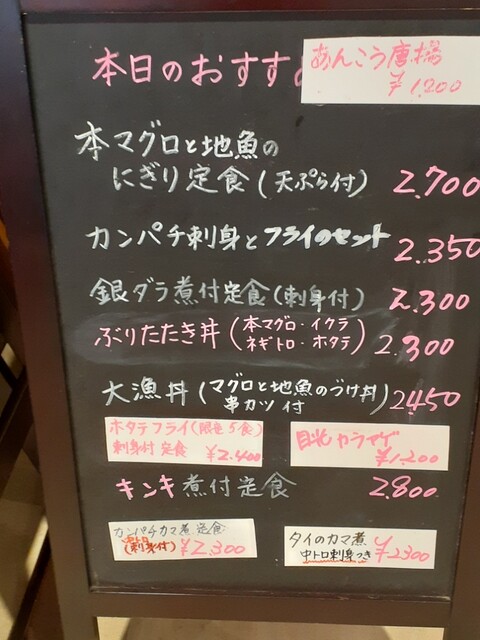 本日のおすすめ
あんこう唐揚
¥1,200
本マグロと地魚の
にぎり定食(天ぷら付) 2,700
カンパチ刺身とフライのセット 2.350
銀ダラ煮付定食(刺身付) 2.300
ぶりたたき丼(本マグロ・イクラ
ネギトロ・ホタテ) 2.300
大漁丼(マグロと地魚のづけ丼)
串カツ付 2450
ホタテフライ(限定5食)
刺身付定食 ¥2.400
目光カラアゲ
¥1,200
キンキ煮付定食 2.800
カンパチカマ煮定食
(刺身付) ¥2,300
タイのカマ煮
中トロ刺身つき ¥2300